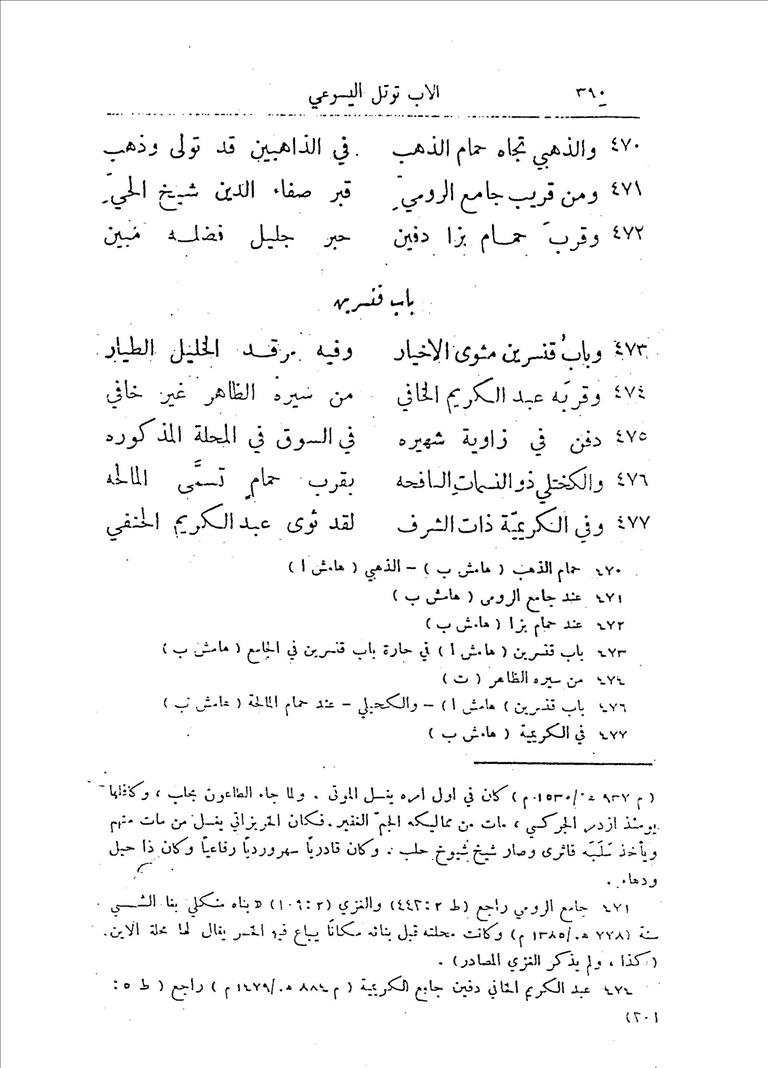 ٣٩٠ الاب توتل اليسوعي
٤٧٠ والذهبي تجاه حمام الذهب في الذاهبين قد تولى وذهب
٤٧١ ومن قريب جامع الرومي قبر صفاء الدين شيخ الحيّ
٤٧٢ وقربَ حمام بزا دفين حبر جليل فضله مبين
باب قنسرين
٤٧٣ وبابُ قنسرين مثوى الاخيار وفيه مرقد الخليل الطيار
٤٧٤ وقربَه عبد الكريم الخافي من سيره الظاهر غير خافي
٤٧٥ دفن في زاوية شهيره في السوق في المحلة المذكوره
٤٧٦ والكختلي ذو النسمات النافحه بقرب حمامٍ تسمَّى المالحه
٤٧٧ وفي الكريميّة ذات الشرف لقد ثوى عبد الكريم الحنفي
٤٧٠ حمام الذهب ( هامش ب ) – الذهبي ( هامش ا )
٤٧١ عند جامع الرومي ( هامش ب )
٤٧٢ عند حمام بزا ( هامش ب )
٤٧٣ باب قنسرين ( هامش ا ) في حارة باب قنسرين في الجامع ( هامش ب )
٤٧٤ من سيره الظاهر ( ت )
٤٧٦ باب قنسرين ) هامش ا ) – والكحيلي – عند حمام المالحة ( هامش ب )
٤٧٧ في الكريمية ( هامش ب )
( م ٩٣٧ ه / ١٥٣٠ م ) كان في اول امره يغسل الموتى . ولما جاء الطاعون بحلب ، وكافلها
يومئذ ازدمر الجركسي ، مات من مماليكه الجمّ الغفير . فكان الحريزاتي يغسل من مات منهم
ويأخذ سَلَبَه فاثرى وصار شيخ شيوخ حلب . وكان قادريًا سهرورديًا رفاعيًا وكان ذا حيل
ودهاء .
٤٧١ جامع الرومي راجع ( ط ٢ : ٤٤٢) والغزي (٢ : ١٠٩) « بناه منكلي بغا الشمسي
سنة (٧٧٨ ه / ١٣٨٥ م ) وكانت محلته قبل بنائه مكانًا يباع فيه الخمر يقال لها محلة الابن.
( كذا ، ولم يذكر الغزي المصادر ) .
٤٧٤ عبد الكريم الخافي دفين جامع الكريمية ( م ٨٨٤ ه / ١٤٧٩ م ) راجع ( ط ٥ :
٣٠١)